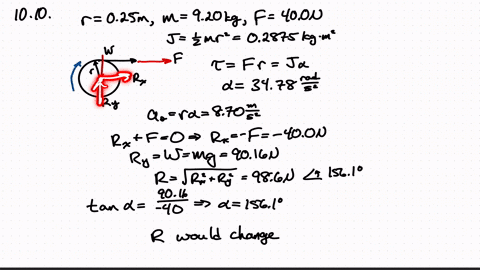 10.10. r = 0.25m, m = 9.20kg, F = 40.0N
J = ½mr² = 0.2875 kg·m²
W
F
r
Rx
Ry
τ = Fr = Jα
α = 34.78 rad/s²
a₀ = rα = 8.70 m/s²
Rx + F = 0 ⇒ Rx = -F = -40.0N
Ry = W = mg = 90.16N
R = √(Rx² + Ry²) = 98.6N ∠ 156.1°
tan α = 90.16/-40 ⇒ α = 156.1°
R would change